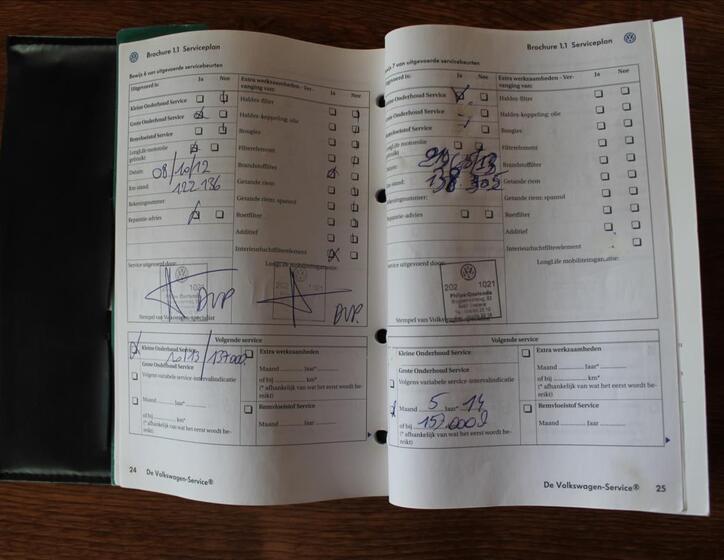 Brochure 1.1 Serviceplan
Bewijs 6 van uitgevoerde servicebeurten
Uitgevoerd is: Ja Nee
Kleine Onderhoud Service
Grote Onderhoud Service
Remvloeistof Service
LongLife motorolie
gebruikt
Datum: 08/10/12
Km-stand: 122 136
Rekeningnummer
Reparatie-advies
Extra werkzaamheden - Ver-
vanging van: Ja Nee
Haldex-filter
Haldex-koppeling: olie
Bougies
Filterelement
Brandstoffilter
Getande riem
Getande riem: spanrol
Roetfilter
Additief
Interieurluchtfilterelement
Service uitgevoerd door:
LongLife mobiliteitsgarantie:
202 1021
DVP.
1021
DVP.
Stempel van Volkswagen-specialist
Volgende service
Kleine Onderhoud Service
10/13/137000
Grote Onderhoud Service
Volgens variabele service-intervalindicatie
Maand Jaar*
of bij km*
(* afhankelijk van wat het eerst wordt be-
reikt)
Extra werkzaamheden
Maand Jaar*
of bij km*
(* afhankelijk van wat het eerst wordt be-
reikt)
Remvloeistof Service
Maand Jaar
24 De Volkswagen-Service®
Brochure 1.1 Serviceplan
Bewijs 7 van uitgevoerde servicebeurten
Uitgevoerd is: Ja Nee
Kleine Onderhoud Service
Grote Onderhoud Service
Remvloeistof Service
LongLife motorolie
gebruikt
Datum:
Km-stand: 138 305
Rekeningnummer:
Reparatie-advies
Extra werkzaamheden - Ver-
vanging van: Ja Nee
Haldex-filter
Haldex-koppeling: olie
Bougies
Filterelement
Brandstoffilter
Getande riem
Getande riem: spanrol
Roetfilter
Additief
Interieurluchtfilterelement
Service uitgevoerd door:
LongLife mobiliteitsgarantie:
202 1021
Stempel van Volkswagen-specialist
Volgende service
Kleine Onderhoud Service
Grote Onderhoud Service
Volgens variabele service-intervalindicatie
Maand 5 Jaar* 14
of bij
(* afhankelijk van wat het eerst wordt be-
reikt)
Extra werkzaamheden
Maand Jaar*
of bij km*
(* afhankelijk van wat het eerst wordt be-
reikt)
Remvloeistof Service
Maand Jaar
De Volkswagen-Service® 25